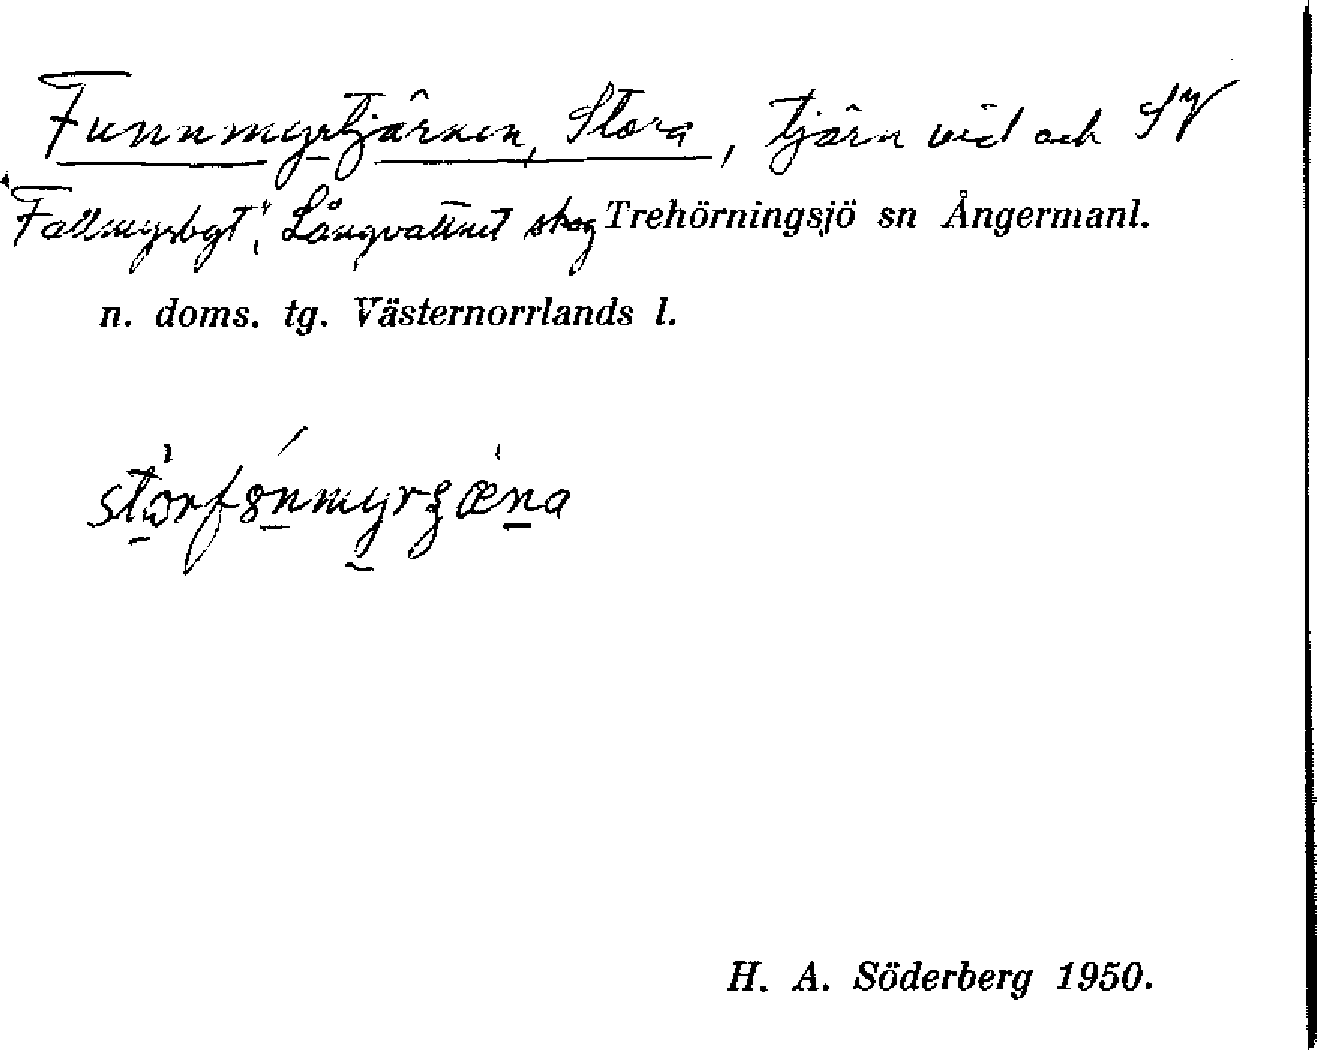 Funnmyrtjärnen, Stora, tjärn vid och SV
"Fallmyrbgt", Långvattnet skog Trehörningsjö sn Ångermanl.
n. doms. tg. Västernorrlands l.
H. A. Söderberg 1950.